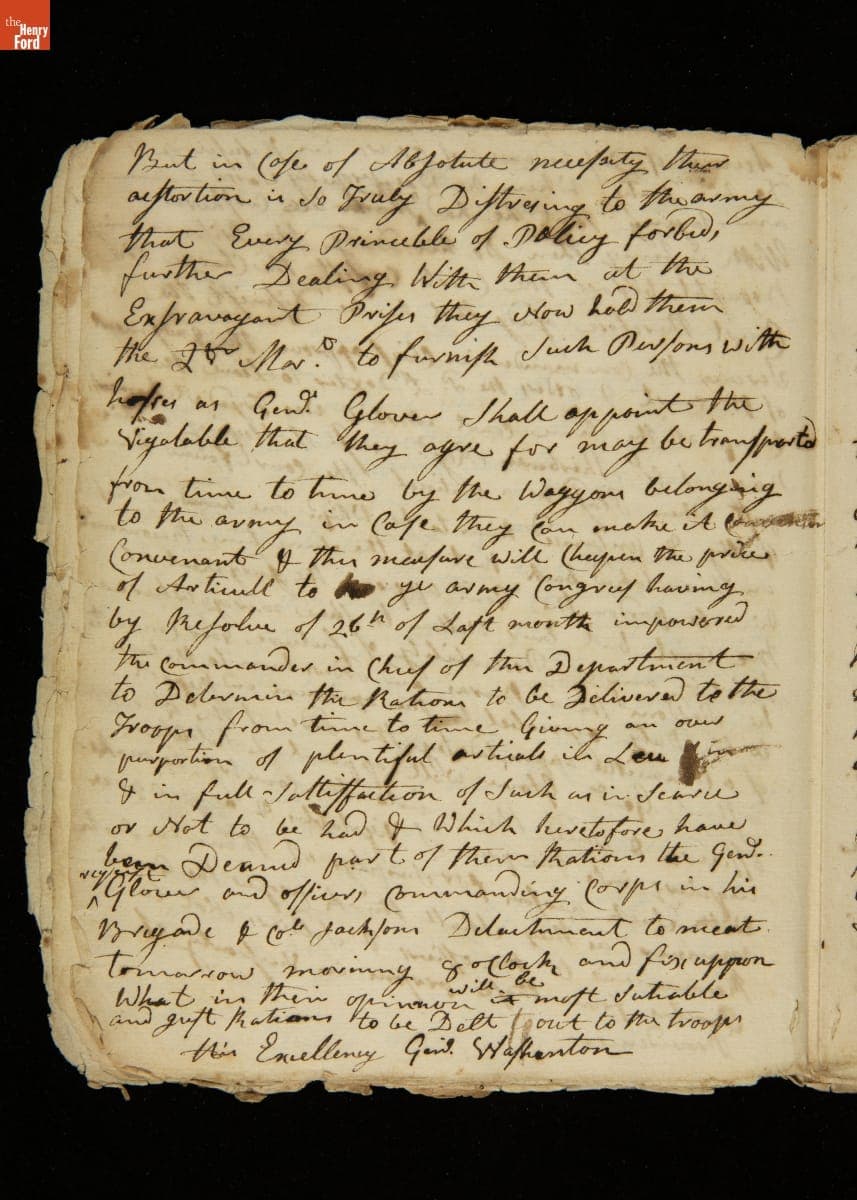 the
Henry
Ford
But in Case of Absolute necesaty their
aestortion is So Truly Distresing to the army
that Every Princeble of Policy forbids
further Dealing With them at the
Exsravagant Prises they Now hold them
the Qr Mar. to furnish Such Persons with
horses as Genl. Glover Shall appoint the
Vigalable that they agre for may be transported
from time to time by the Waggons belonging
to the army in Case they Can make it
Convenant & this measure will Cheepen the price
of Articull to ye army Congress having
by Resolve of 26th of Last month impowered
the Commander in Cheef of this Department
to Determin the Rations to be Delivered to the
Troops from time to time Giving an over
purportion of plentiful articals in Leu
& in full Sattisfaction of Such as is Scarce
or Not to be had & Which heretofore have
been Deemd part of them Rations the Genl.
requests
^ Glover and officers Commanding Corps in his
Brigade & Col. Jacksons Detachment to meat
tomorrow morning 8 oClock and fix uppon
What in their opinnion will be most Sutiable
and Just Rations to be Delt out to the troops
His Excellency Genl. Washenton